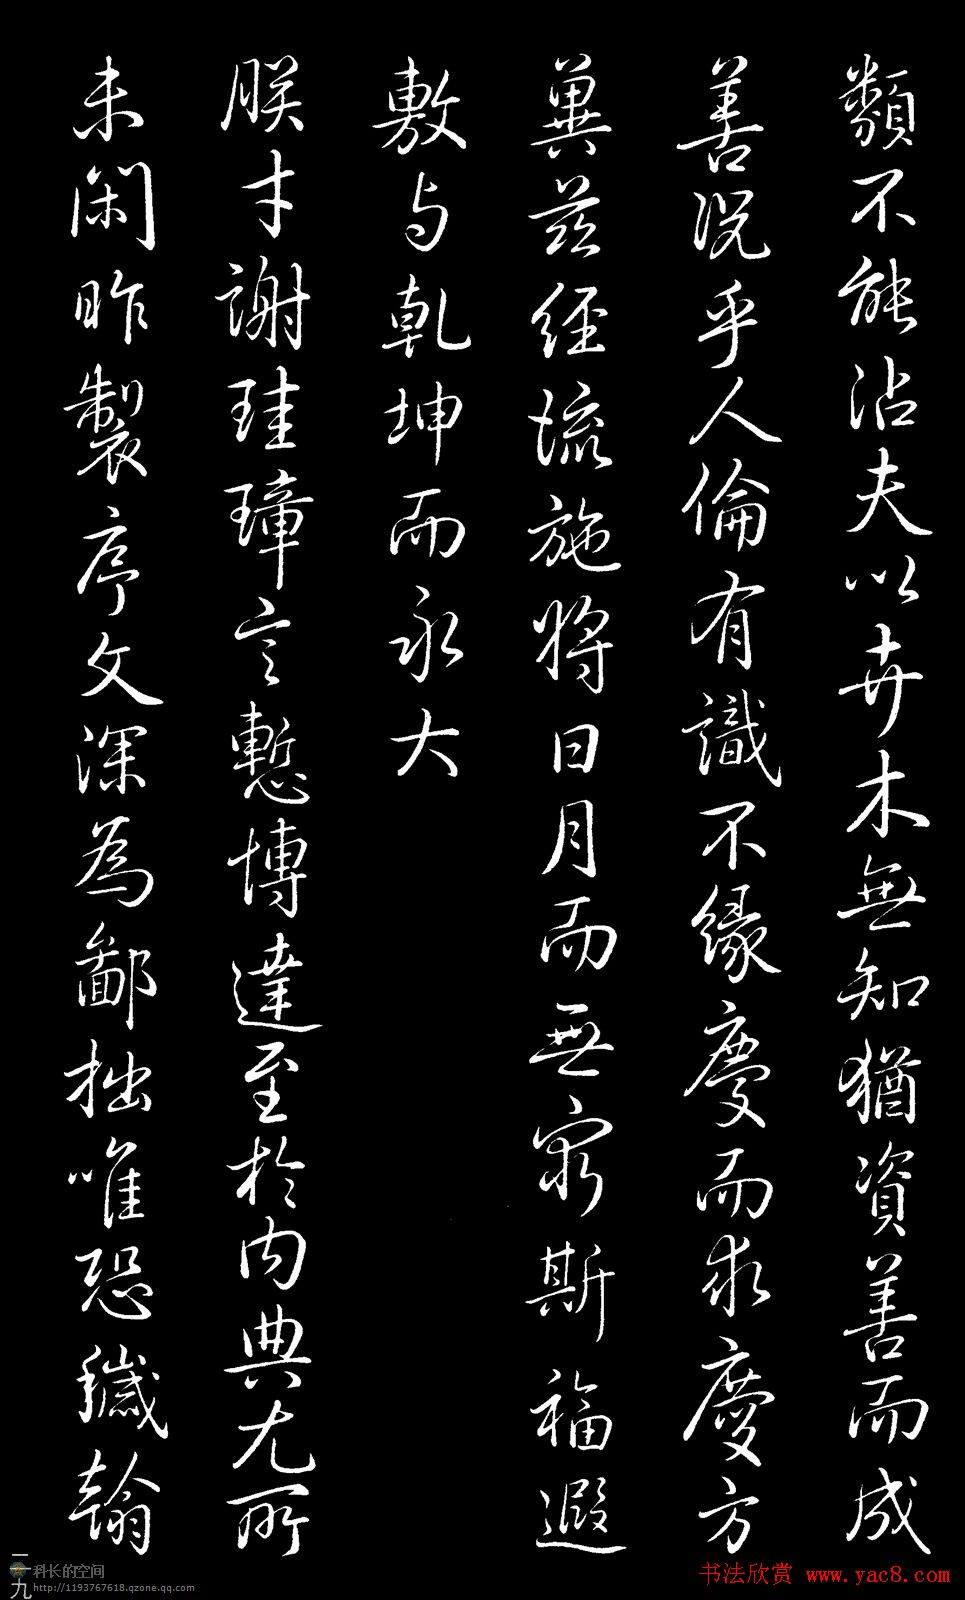 類不能沾夫以卉木無知猶資善而成
善況乎人倫有識不緣慶而求慶方
冀茲經流施將日月而無窮斯福遐
敷与乾坤而永大
朕才謝珪璋言慙博達至於內典尤所
未閑昨製序文深為鄙拙唯恐穢翰
二十九
科长的空间
http://1193767618.qzone.qq.com
书法欣赏 www.yac8.com